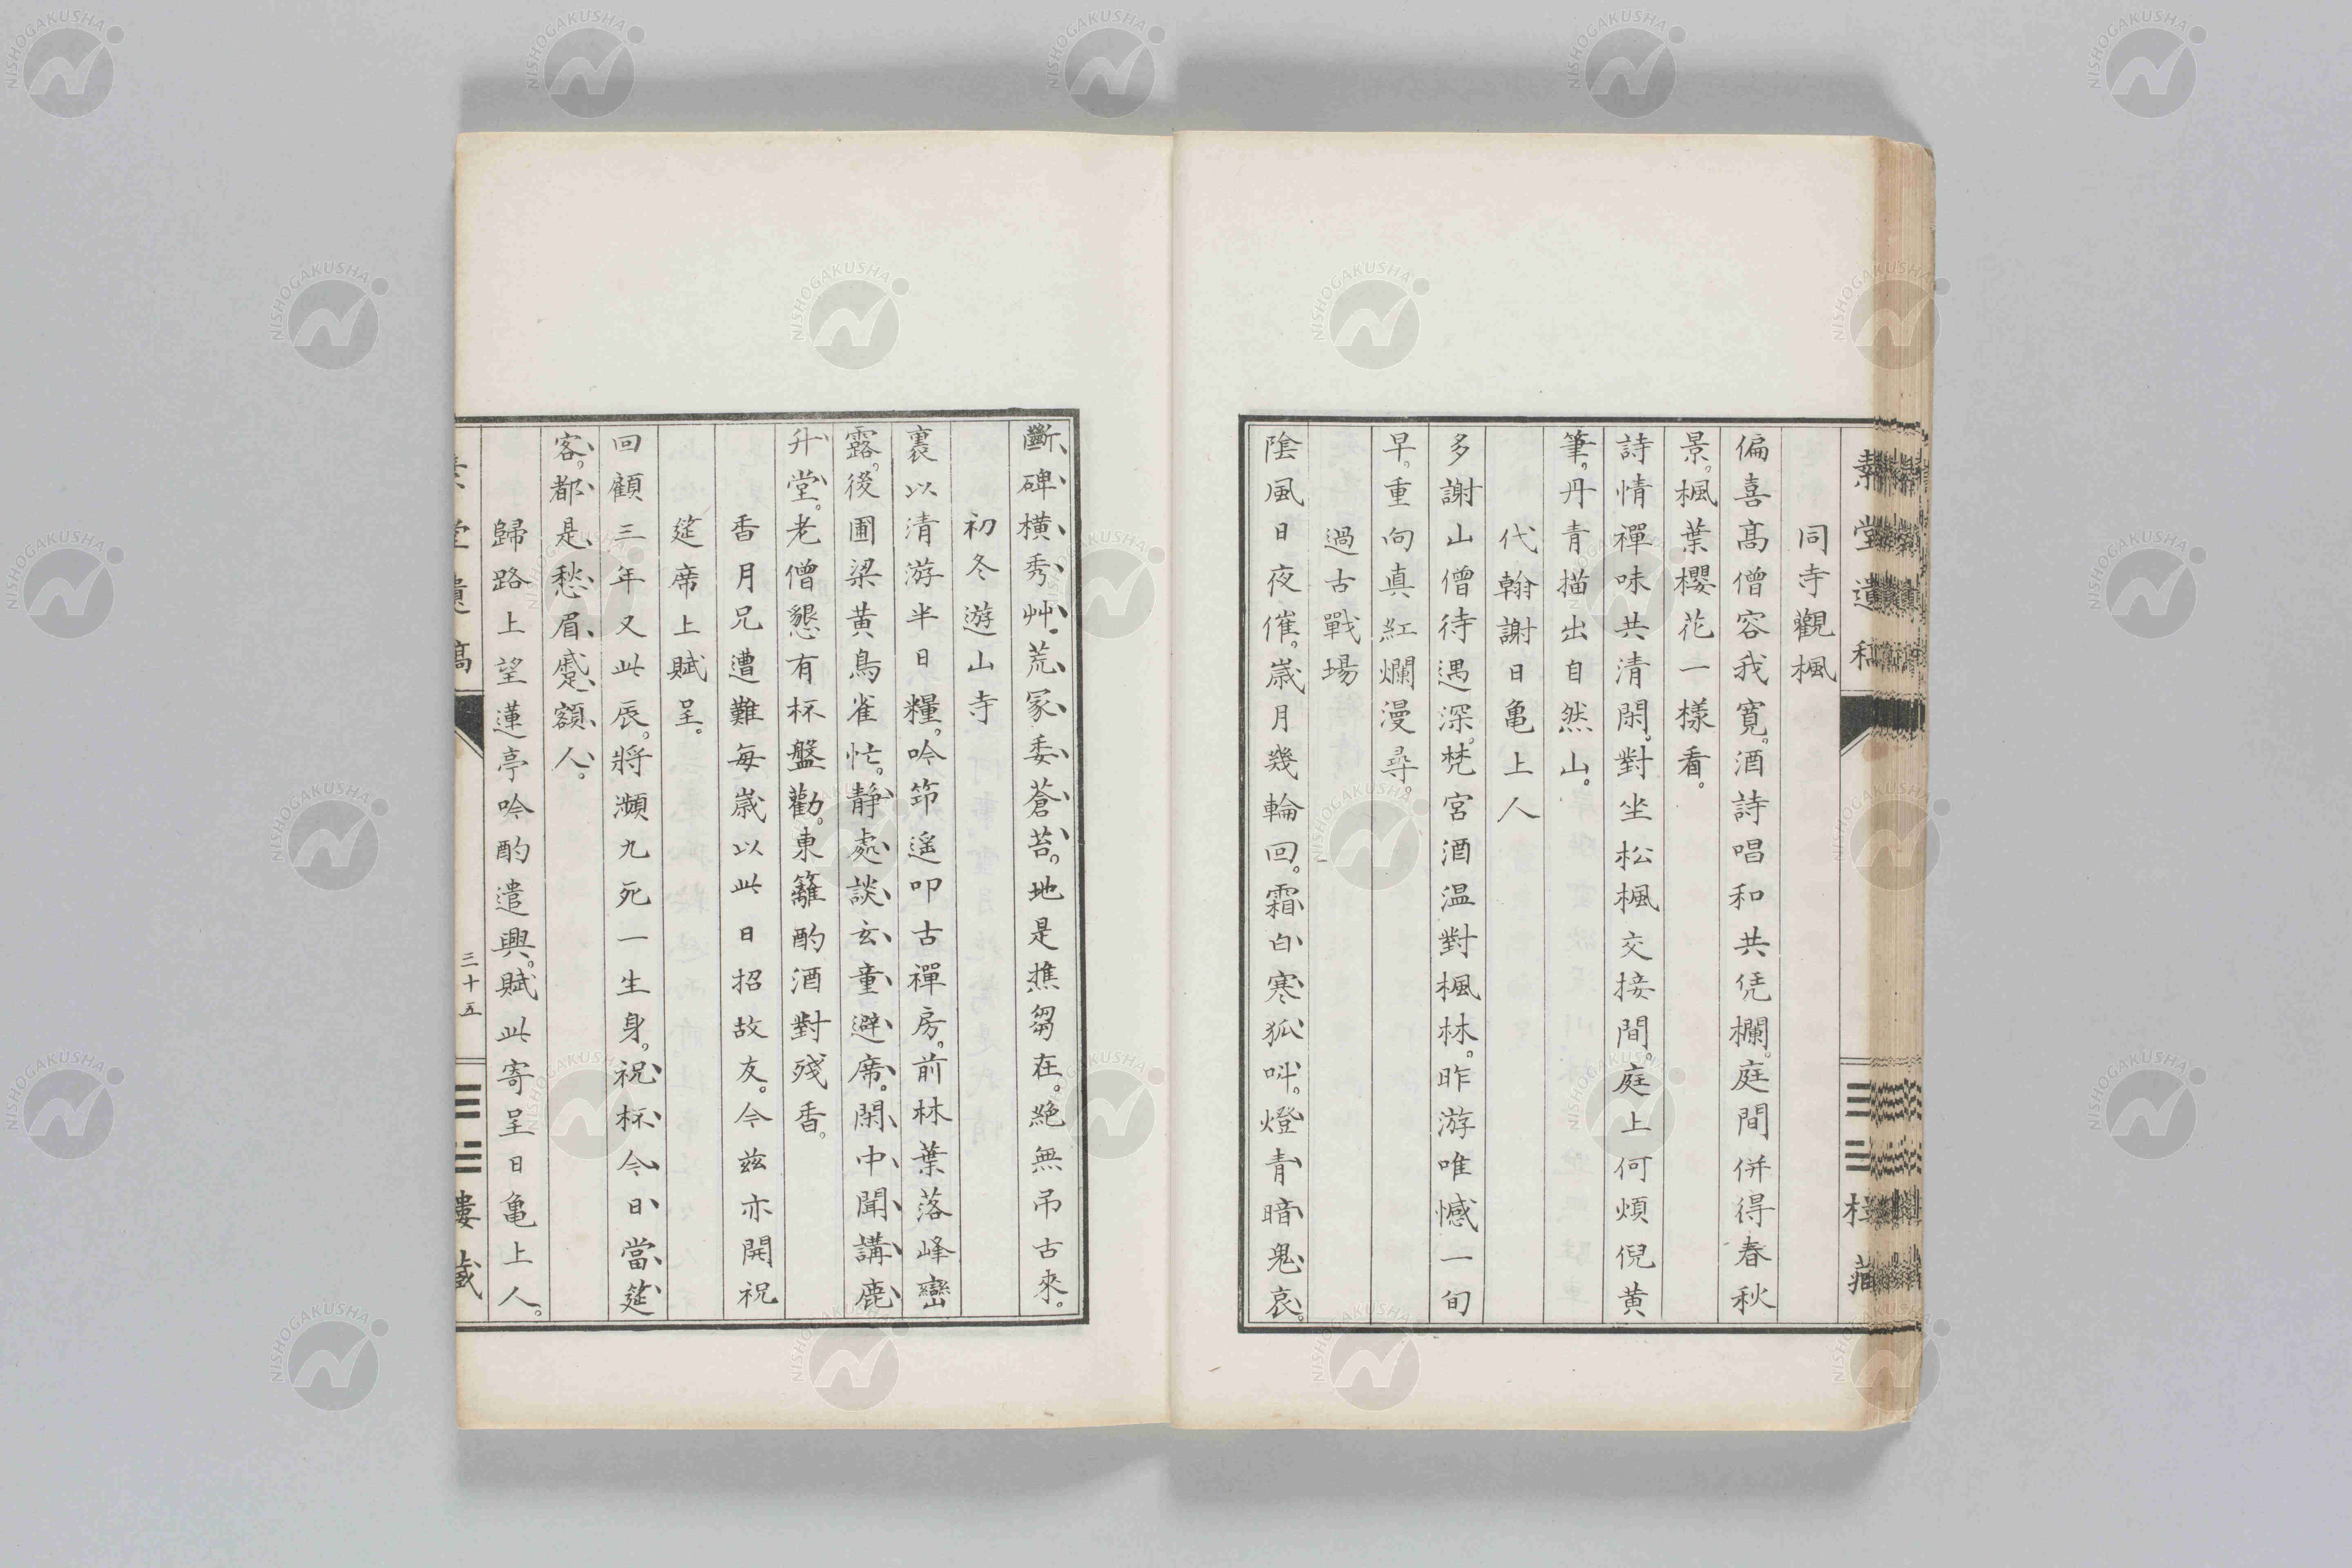 同寺觀楓
偏喜髙僧容我寛。酒詩唱和共凭欄。庭間併得春秋
景。楓葉櫻花一樣看。
詩情禪味共清閑。對坐松楓交接間。庭上何煩倪黄
筆。丹青描出自然山。
代翰謝日亀上人
多謝山僧待遇深。梵宮酒温對楓林。昨游唯憾一旬
早。重向真紅爛漫尋。
過古戰場
陰風日夜催。歳月幾輪回。霜白寒狐呌。燈青暗鬼哀。
斷碑横秀艸。荒冢委蒼苔。地是樵芻在。絶無吊古來。
初冬遊山寺
裏以清游半日糧。吟笻遥叩古禪房。前林葉落峰巒
露。後圃梁黄鳥雀忙。静處談玄童避席。閑中聞講鹿
升堂。老僧懇有杯盤勸。東籬酌酒對殘香。
香月兄遭難毎歳以此日招故友。今兹亦開祝
筵席上賦呈。
回顧三年又此辰。將瀕九死一生身。祝杯今日當筵
客。都是愁眉蹙額人。
歸路上望蓮亭吟酌遣興。賦此寄呈日亀上人。
三十五
樓藏
NISHOGAKUSHA